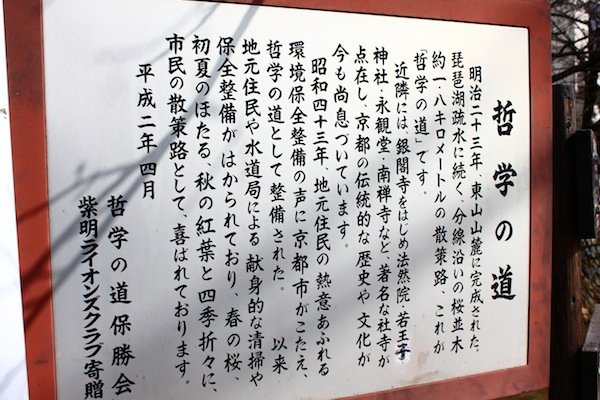 哲学の道
明治二十三年、東山山麓に完成された、
琵琶湖疏水に続く、分線沿いの桜並木
約一・八キロメートルの散策路、これが
「哲学の道」です。
近隣には、銀閣寺をはじめ法然院、若王子
神社・永観堂・南禅寺など、著名な社寺が
点在し、京都の伝統的な歴史や文化が
今も尚息づいています。
昭和四十三年、地元住民の熱意あふれる
環境保全整備の声に京都市がこたえ、
哲学の道として整備された。　以来
地元住民や水道局による献身的な清掃や
保全整備がはかられており、春の桜、
初夏のほたる、秋の紅葉と四季折々に、
市民の散策路として、喜ばれております。
平成二年四月
哲学の道保勝会
紫明ライオンズクラブ寄贈